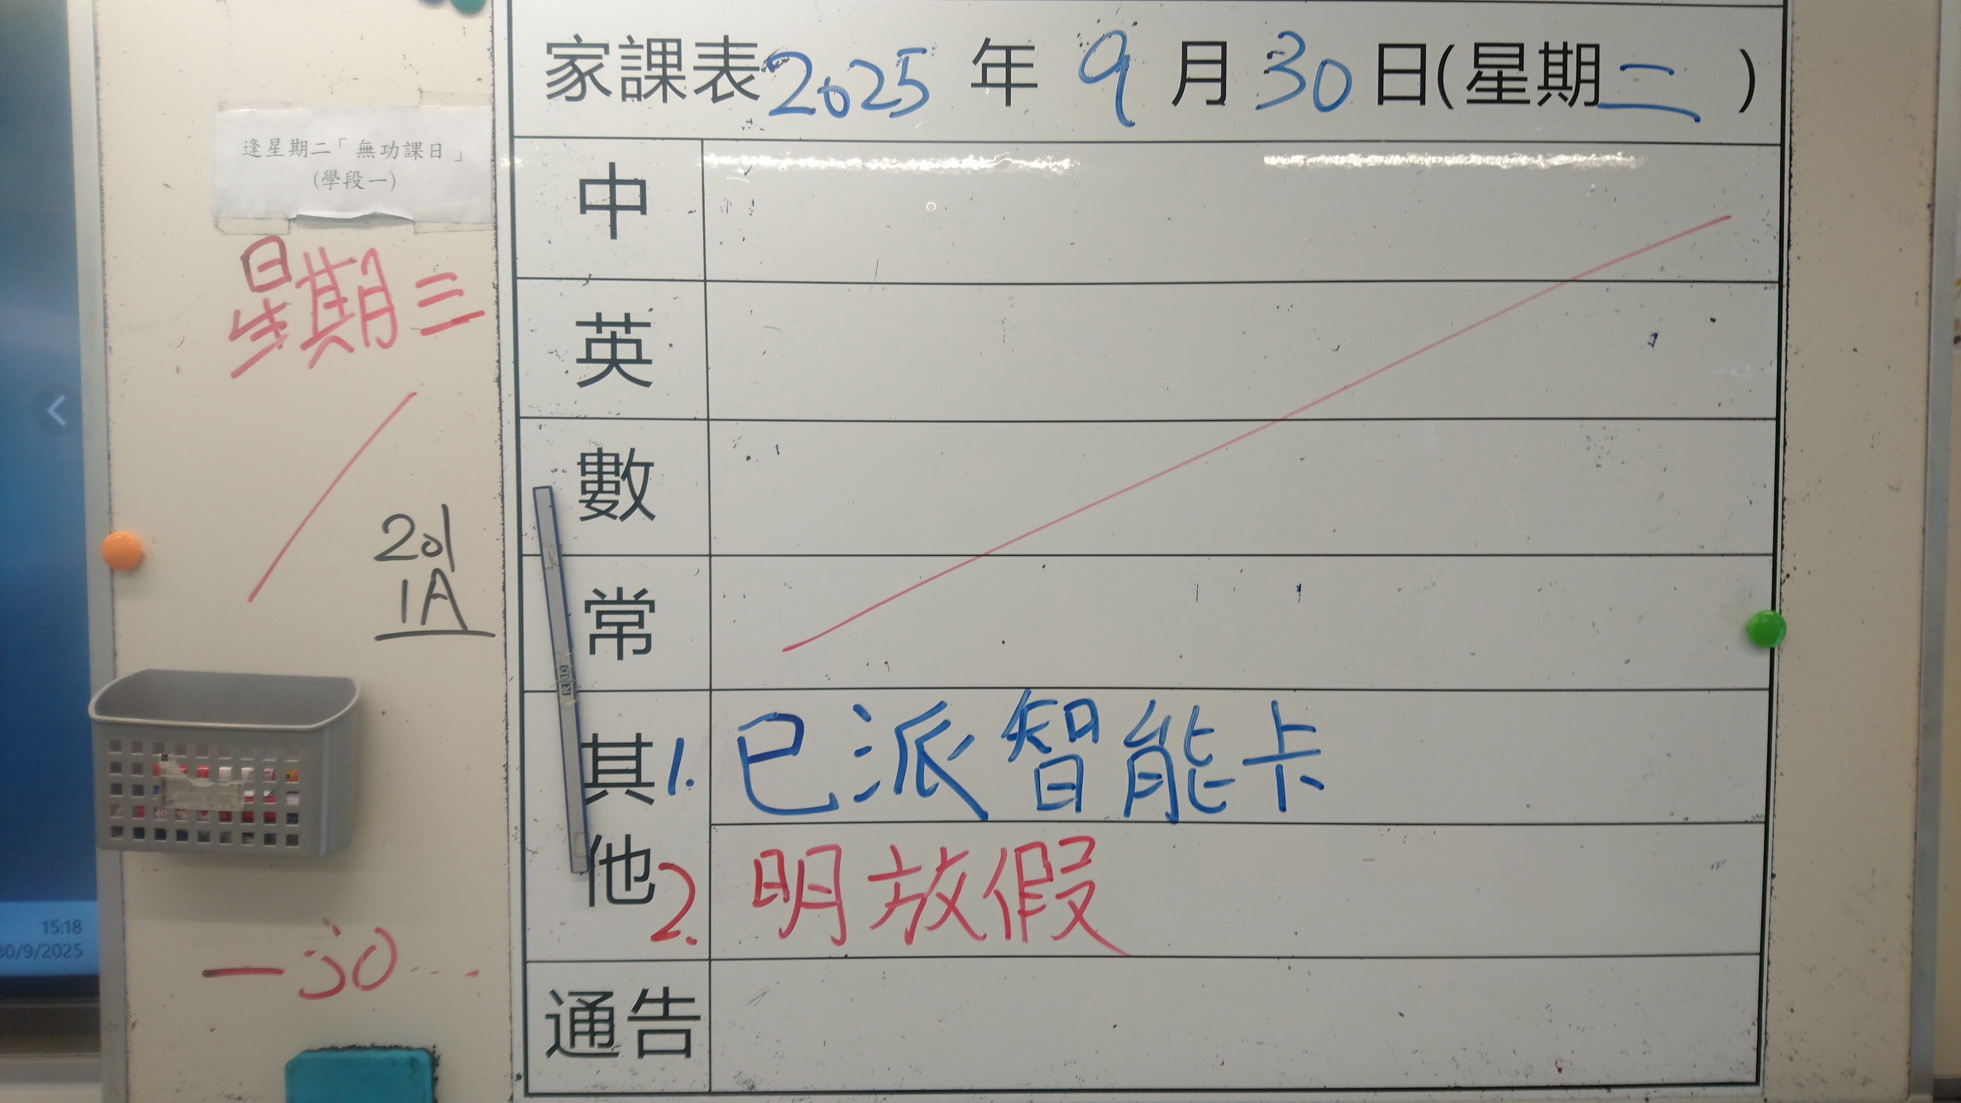 家課表2025年9月30日(星期二)
逢星期二「無功課日」
(學段一)
星期三
中
英
數
常
201
1A
其他
1. 已派智能卡
2. 明放假
通告
15:18
30/9/2025